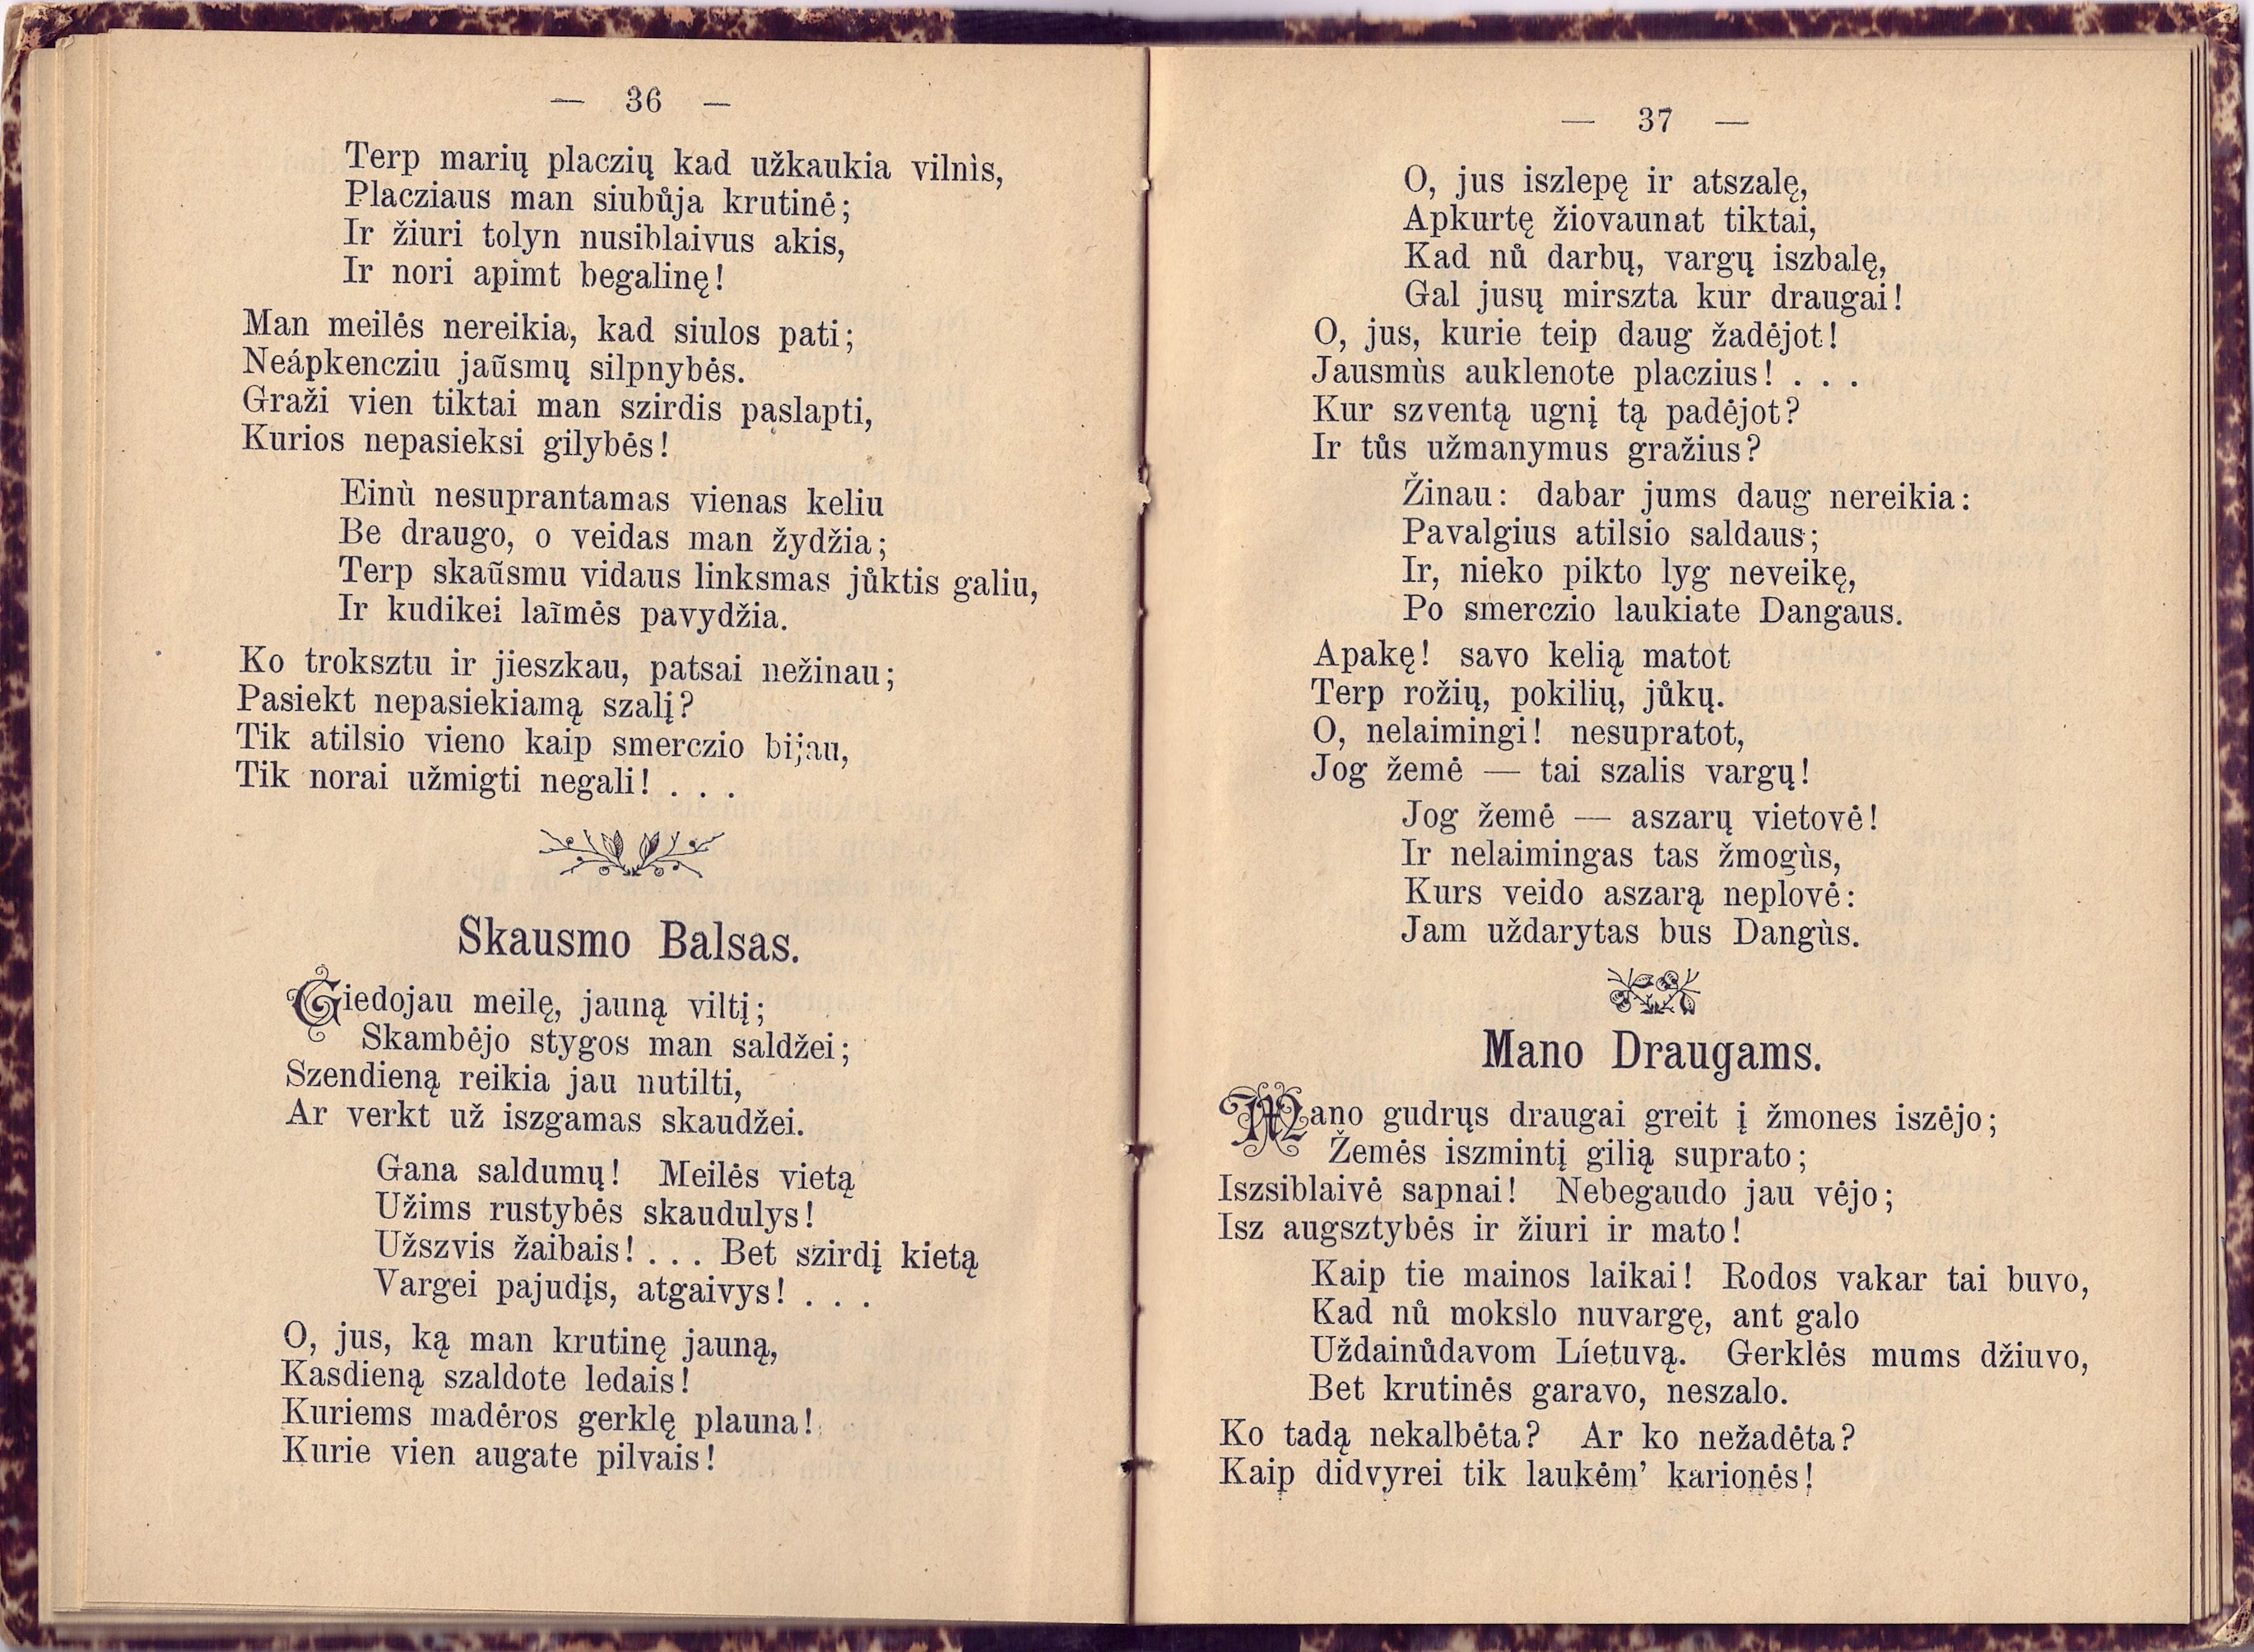 — 36 —
Terp marių placzių kad užkaukia vilnìs,
Placziaus man siubůja krutinė;
Ir žiuri tolyn nusiblaivus akis,
Ir nori apimt begalinę!
Man meilės nereikia, kad siulos pati;
Neápkencziu jaũsmų silpnybės.
Graži vien tiktai man szirdis paslapti,
Kurios nepasieksi gilybės!
Einù nesuprantamas vienas keliu
Be draugo, o veidas man žydžia;
Terp skaũsmu vidaus linksmas jůktis galiu,
Ir kudikei laĩmės pavydžia.
Ko troksztu ir jieszkau, patsai nežinau;
Pasiekt nepasiekiamą szalį?
Tik atilsio vieno kaip smerczio bijau,
Tik norai užmigti negali! . . .
Skausmo Balsas.
Giedojau meilę, jauną viltį;
Skambėjo stygos man saldžei;
Szendieną reikia jau nutilti,
Ar verkt už iszgamas skaudžei.
Gana saldumų! Meilės vietą
Užims rustybės skaudulys!
Užszvis žaibais! . . . Bet szirdį kietą
Vargei pajudįs, atgaivys! . . .
O, jus, ką man krutinę jauną,
Kasdieną szaldote ledais!
Kuriems madėros gerklę plauna!
Kurie vien augate pilvais!
— 37 —
O, jus iszlepę ir atszalę,
Apkurtę žiovaunat tiktai,
Kad nů darbų, vargų iszbalę,
Gal jusų mirszta kur draugai!
O, jus, kurie teip daug žadėjot!
Jausmùs auklenote placzius! . . .
Kur szventą ugnį tą padėjot?
Ir tůs užmanymus gražius?
Žinau: dabar jums daug nereikia:
Pavalgius atilsio saldaus;
Ir, nieko pikto lyg neveikę,
Po smerczio laukiate Dangaus.
Apakę! savo kelią matot
Terp rožių, pokilių, jůkų.
O, nelaimingi! nesupratot,
Jog žemė — tai szalis vargų!
Jog žemė — aszarų vietovė!
Ir nelaimingas tas žmogùs,
Kurs veido aszarą neplovė:
Jam uždarytas bus Dangùs.
Mano Draugams.
Mano gudrųs draugai greit į žmones iszėjo;
Žemės iszmintį gilią suprato;
Iszsiblaivė sapnai! Nebegaudo jau vėjo;
Isz augsztybės ir žiuri ir mato!
Kaip tie mainos laikai! Rodos vakar tai buvo,
Kad nů mokslo nuvargę, ant galo
Uždainůdavom Líetuvą. Gerklės mums džiuvo,
Bet krutinės garavo, neszalo.
Ko tadą nekalbėta? Ar ko nežadėta?
Kaip didvyrei tik laukėm’ karionės!